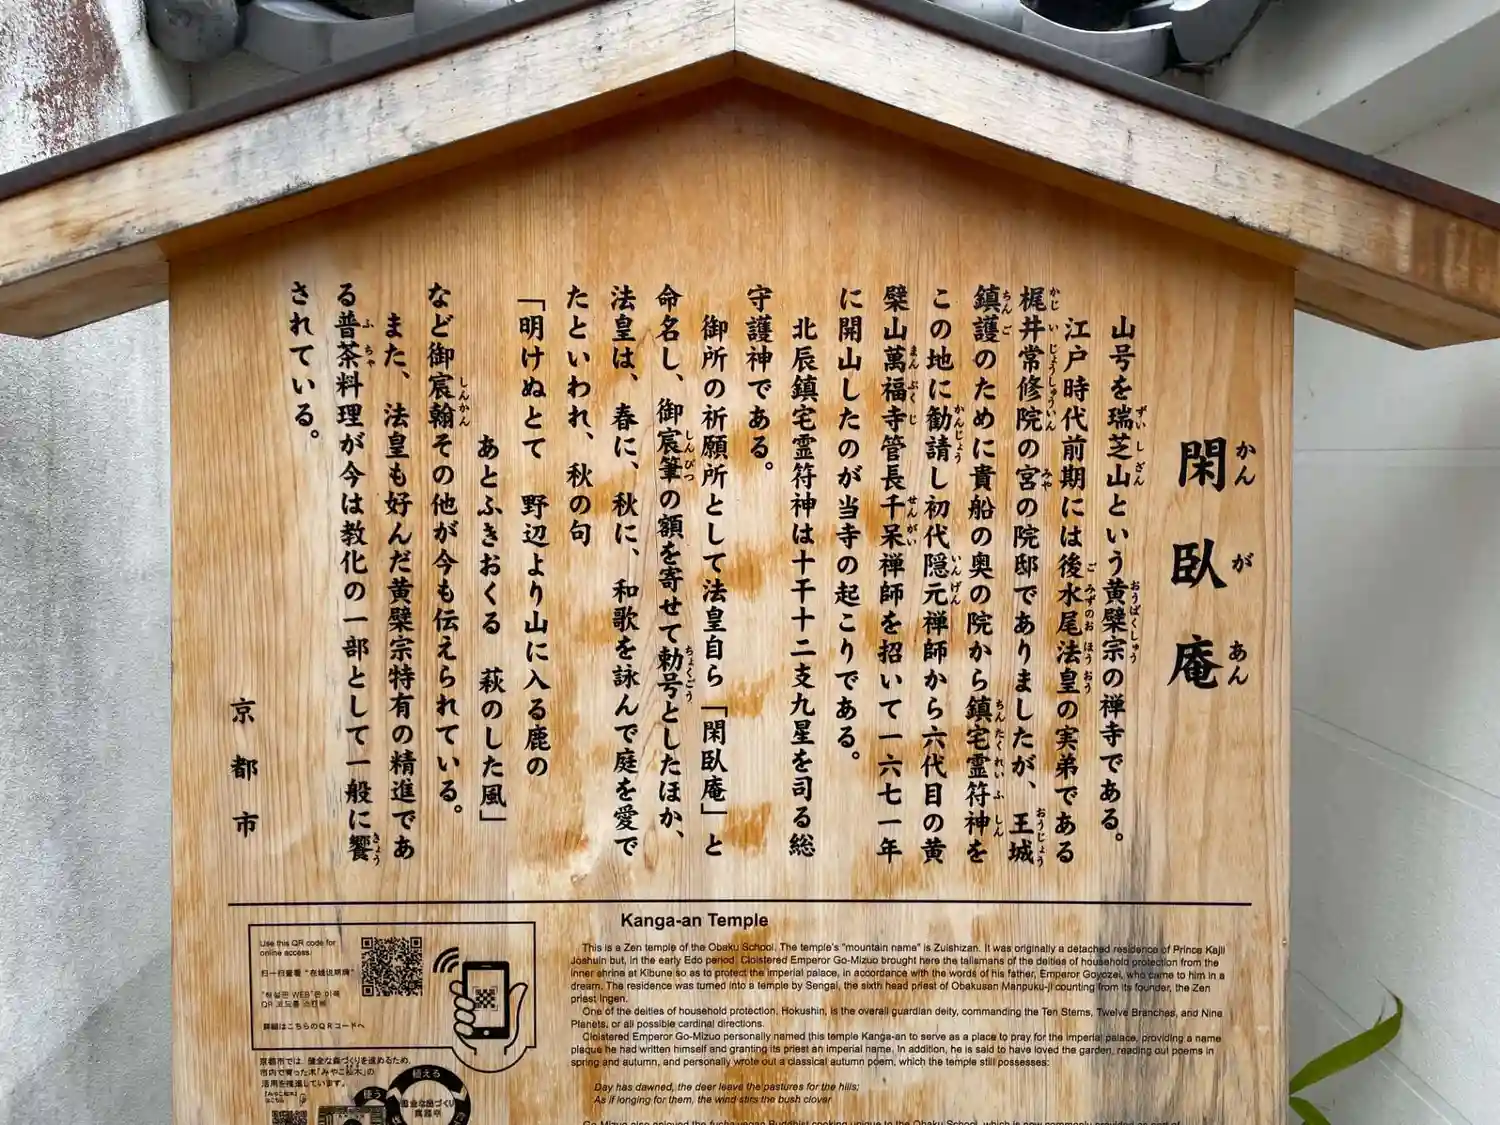 閑臥庵
山号を瑞芝山という黄檗宗の禅寺である。
江戸時代前期には後水尾法皇の実弟である
梶井常修院の宮の院邸でありましたが、王城
鎮護のために貴船の奥の院から鎮宅霊符神を
この地に勧請し初代隠元禅師から六代目の黄
檗山萬福寺管長千呆禅師を招いて一六七一年
に開山したのが当寺の起こりである。
北辰鎮宅霊符神は十干十二支九星を司る総
守護神である。
御所の祈願所として法皇自ら「閑臥庵」と
命名し、御宸筆の額を寄せて勅号としたほか、
法皇は、春に、秋に、和歌を詠んで庭を愛で
たといわれ、秋の句
「明けぬとて 野辺より山に入る鹿の
あとふきおくる 萩のした風」
など御宸翰その他が今も伝えられている。
また、法皇も好んだ黄檗宗特有の精進であ
る普茶料理が今は教化の一部として一般に饗
されている。
京都市
Kanga-an Temple
This is a Zen temple of the Obaku School. The temple's "mountain name" is Zuishizan. It was originally a detached residence of Prince Kajii
Joshuin but, in the early Edo period, Cloistered Emperor Go-Mizuo brought here the talismans of the deities of household protection from the
inner shrine at Kibune so as to protect the imperial palace, in accordance with the words of his father, Emperor Goyozei, who came to him in a
dream. The residence was turned into a temple by Sengai, the sixth head priest of Obakusan Manpuku-ji counting from its founder, the Zen
priest Ingen.
One of the deities of household protection, Hokushin, is the overall guardian deity, commanding the Ten Stems, Twelve Branches, and Nine
Planets, or all possible cardinal directions.
Cloistered Emperor Go-Mizuo personally named this temple Kanga-an to serve as a place to pray for the imperial palace, providing a name
plaque he had written himself and granting its priest an imperial name. In addition, he is said to have loved the garden, reading out poems in
spring and autumn, and personally wrote out a classical autumn poem, which the temple still possesses:
Day has dawned, the deer leave the pastures for the hills;
As if longing for them, the wind stirs the bush clover
Go-Mizuo also enjoyed the fucha vegan Buddhist cooking unique to the Obaku School, which is now commonly provided as part of
Use this QR code for
online access!
扫一扫查看“在线说明牌”
"해설판 WEB"은 이쪽
QR 코드를 스캔해
詳細はこちらのQRコードへ
京都市では、健全な森づくりを進めるため、
市内で育った木「みやこ杣木」の
活用を推進しています。
植える